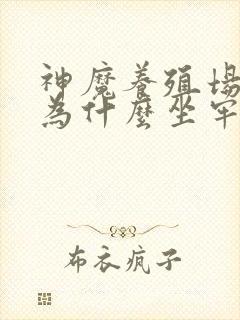 神魔養殖場
為什麼坐牢
布衣疯子